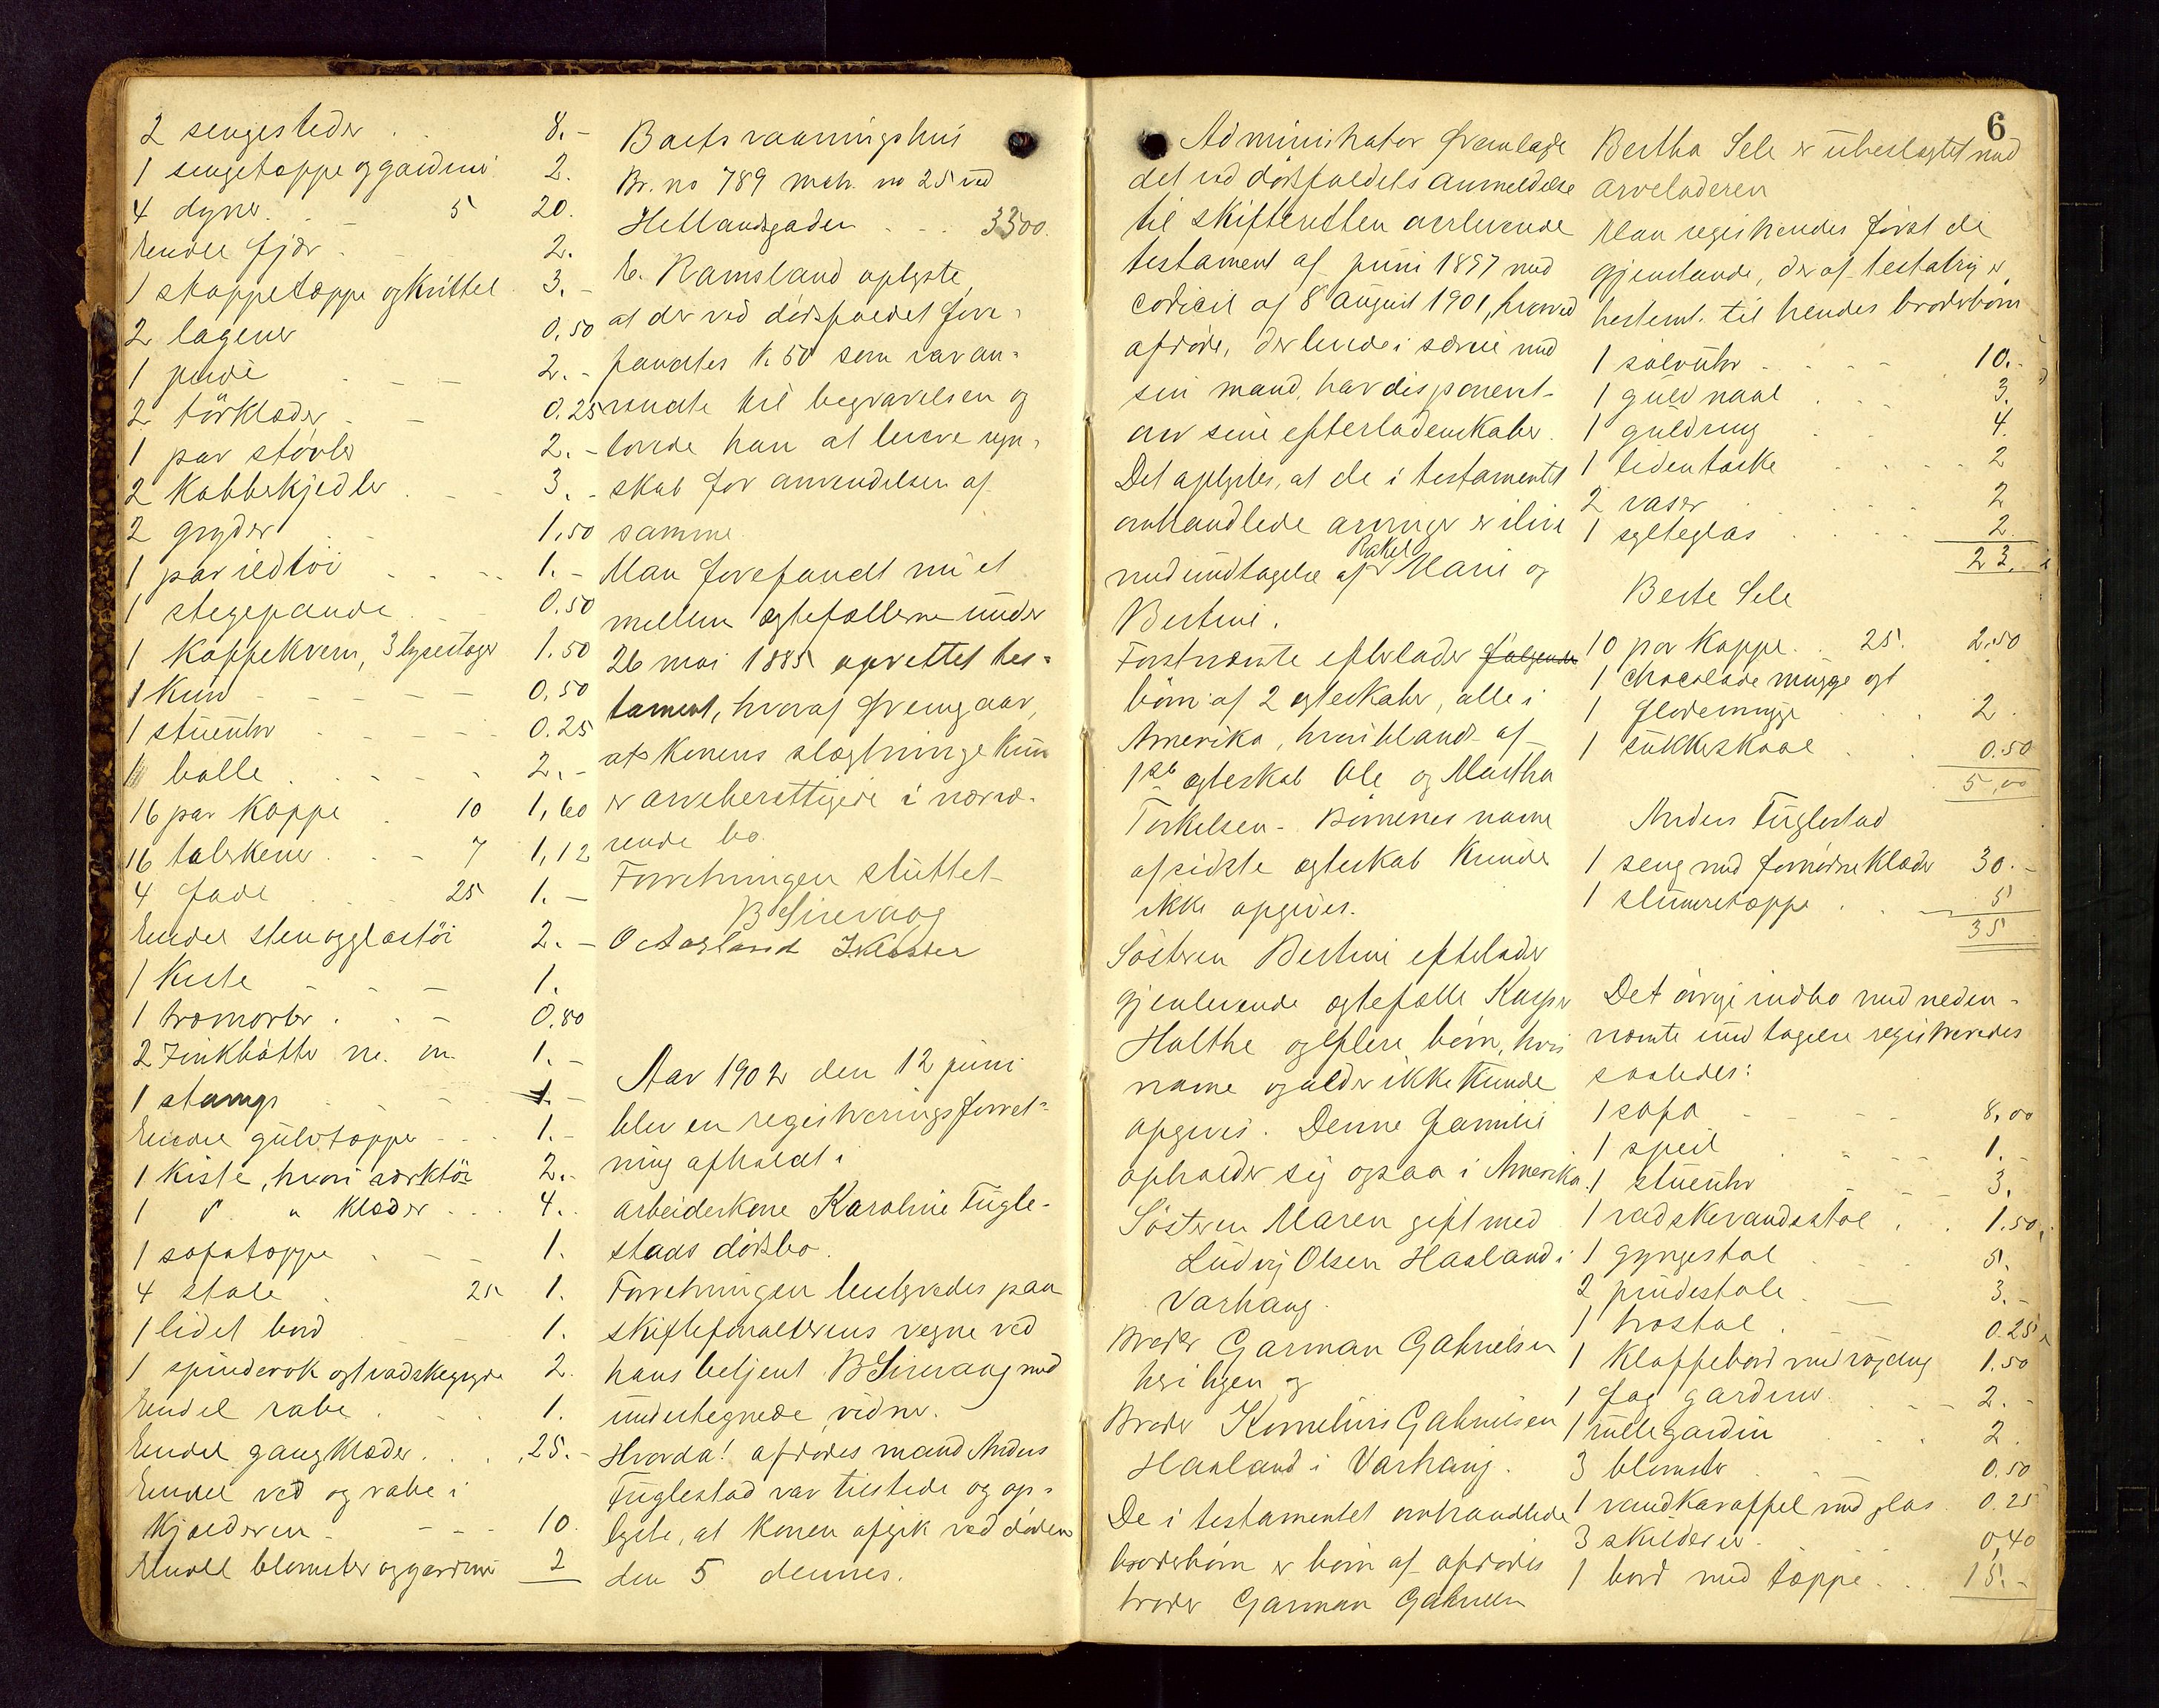 2 sengesteder . . 8.-
1 sengetæppe og gardini 2.
4 dyner. . - 5 20.
Endel fjær - 2.
1 stoppetæppe og kvittel 3.-
2 lagener 0,50
1 pude . - - 2.-
2 törklæder - - 0.25
1 par støvler 2.-
2 Kobbekjedler . - - 3.-
2 gryder . - 1,50
1 par ildtöi . . - - 1.-
1 stegepande . - 0,50
1 Kaffekvern, 3 lysestager 1.50
1 Kurv - - - - - 0,50
1 stueuhr - - - - - 0.25
1 balle . - - - - 2.-
16 par Koppe . 10 1,60
16 talerkener . - - 7 1,12
4 fade . . - 25 1.-
Endel sten og glastöi 2.-
1 Kiste - - - 1.
1 træmorter . . - 0,80
2 Zinkbøtter m. m. 1.-
1 stamp - - - 1.-
Endel gulvtæpper - - 1.-
1 Kiste, hvori særktöi 2.-
1 " " Klæder . . . 4..
1 sofatæppe . - - 1.
4 stole . 25 1.
1 lidet bord - - 1.
1 spinderok og 1 vadskegryde 2.
Endel rabe . - . 1.
Endel gangklæder . . . 25.-
Endel ved og rabe i
Kjælderen - - - - 10.
Endel blomster og gardiner 2
Boets vaaningshus
Br. no 789 matr. no 25 ved
Hetlandsgaden - - . 3300.
E. Ramsland oplyste
at der ved dødsfaldet fore-
fandtes k. 50 som var an-
vendte til begravelsen og
lovede han at levere regn-
skab for anvendelsen af
samme.
Man forefandt nu et
mellem ægtefællerne under
26 mai 1885 oprettet tes-
tament, hvoraf fremgaar,
at Konens slægtninge kun
er arveberettigede i nærvæ-
rende bo.
Forretningen sluttet
B Sirevaag
O Aarsland
Aar 1902 den 12 juni
blev en registreringsforret-
ning afholdt i
arbeiderkone Karoline Fugle-
stads dødsbo.
Forretningen bestyredes paa
skifteforvalterens vegne ved
hans betjent B Sirevaag med
undertegnede vidner.
Hvorda! afdødes mand Anders
Fuglestad var tilstede og op-
lyste, at Konen afgik ved døden
den 5 dennes.
6
Administrator fremlagde
det ved dødsfaldets anmeldelse
til skifteretten indleverede
testament af juni 1897 med
codicil af 8 august 1901, hvorved
afdøde, der levede i særeie med
sin mand, har disponeret
over sine efterladenskaber.
Det oplystes, at de i testamentet
omhandlede arvinger er ilive
med undtagelse af Rakel Marie og
Bertine.
Førstnævnte efterlader følgende
børn af 2 ægteskaber, alle i
Amerika, hvoriblandt af
1ste ægteskab Ole og Martha
Torkelsen - Børnenes navne
af sidste ægteskab kunde
ikke opgives.
Søsteren Bertine efterlader
gjenlevende ægtefælle Kasper
Holthe og flere børn, hvis
navne og alder ikke kunde
opgives. Denne familie
opholder sig ogsaa i Amerika.
Søsteren Maren gift med
Ludvig Olsen Haaland i
Varhaug.
Broder Garman Gabrielsen
her i byen og
Broder Kornelius Gabrielsen
Haaland i Varhaug.
De i testamentet omhandlede
broderbörn er börn af afdødes
broder Garman Gabrielsen
Bertha Sele er ubeslægtet med
arveladeren
Man registrerdes først de
gjenstande, der af testatrix er
bestemt til hendes broderbörn
1 sølvuhr . - - - 10.-
1 guldnaal . - - 3.
1 guldring . . 4.
1 lidentaske - - - - 2
2 vaser . - - - 2
1 sylteglas . - - - 2
23.
Berte Sele
10 par Koppe . . 25. 2.50
1 chocolade mugge og 1
1 flødemugge . . . 2.
1 sukkerskaal . . 0.50
5,00
Anders Fuglestad
1 seng med fornødne klæder 30.-
1 slumretæppe . . - 5
35
Det øvrige indbo med neden-
nævnte undtagelse registreredes
saaledes:
1 sofa - - - - 8,00
1 speil . - - - 1.-
1 stueuhr - - - 3.
1 vadskevandsstol . . . 1.50
1 gyngestol . - - 5.
2 pindestole . - 3.-
1 træstol . 0.25
1 Klaffebord med voxdug 1.50
1 fag gardiner . - - 2.-
1 rullegardin . . . 2.
3 blomster . . 0.50
1 vandkaraffel med glas . 0.25
3 skilderier . . 0,40
1 bord med tæppe . . . 15.-